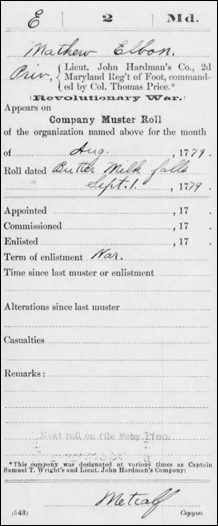 E 2 Md.
Mathew Elbon,
Priv, { Lieut. John Hardman's Co., 2d
Maryland Reg't of Foot, command-
ed by Col. Thomas Price.*
(Revolutionary War.)
Appears on
Company Muster Roll
of the organization named above for the month
of Aug, 1779.
Roll dated Butter Milk falls
Sept. 1, 1779.
Appointed , 17 .
Commissioned , 17 .
Enlisted , 17 .
Term of enlistment War.
Time since last muster or enlistment
Alterations since last muster
Casualties
Remarks:
Next roll on file Feby. 1780.
*This company was designated at various times as Captain
Samuel T. Wright's and Lieut. John Hardman's Company:
Metcalf
(543) Copyist.